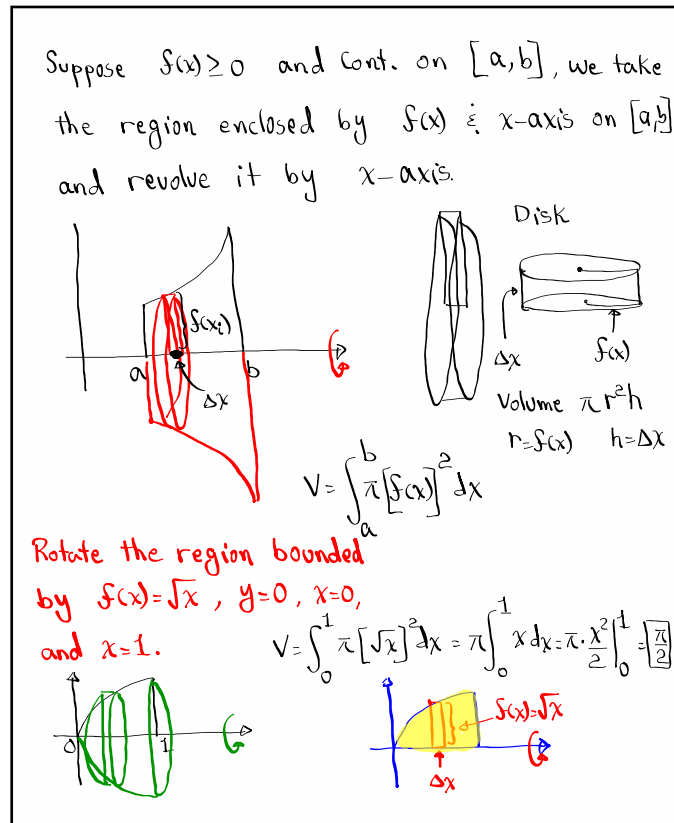 Suppose f(x) ≥ 0 and Cont. on [a,b], we take
the region enclosed by f(x) & x-axis on [a,b]
and revolve it by x-axis.
Disk
f(xᵢ)
a
b
Δx
Δx
f(x)
Volume πr²h
r=f(x) h=Δx
V= ∫ₐᵇ π[f(x)]² dx
Rotate the region bounded
by f(x)=√x , y=0 , x=0,
and x=1.
V= ∫₀¹ π[√x]² dx = π ∫₀¹ x dx = π · x²/2 |₀¹ = π/2
0
1
f(x)=√x
Δx